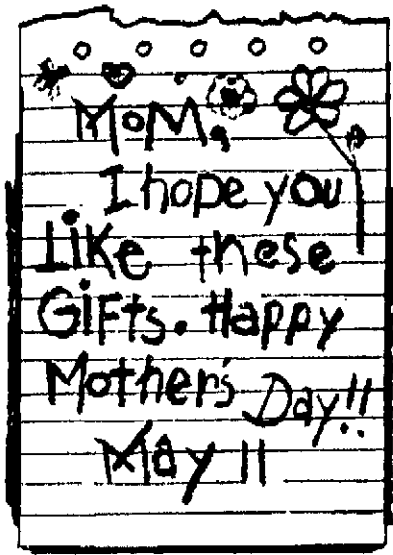 MOM,
I hope you
Like these
GiFts. Happy
Mother's Day!!
May 11